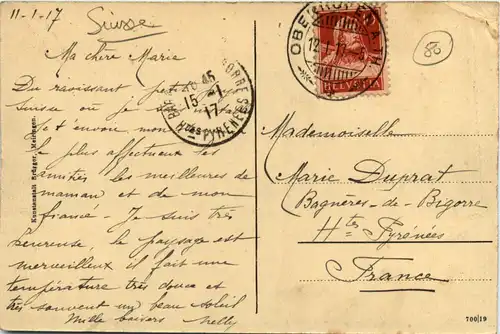 11-1-17
Suisse
Ma chère Marie
Du ravissant petit
suisse ou je
t'envoie mon
le plus affectueux et
amitiés les meilleures de
maman et de mon
fiancé - Je suis très
heureuse, le paysage est
merveilleux il fait une
température très douce et
très souvent un beau soleil
Mille baisers Nelly
Kunstanstalt Brügger, Meiringen.
OBERHOFEN
12.I.17
HELVETIA
10 45
15 -1
17
BIGORRE
HTES PYRENEES
80
Mademoiselle
Marie Duprat
Bagnères-de-Bigorre
Htes Pyrénées
France
700|19